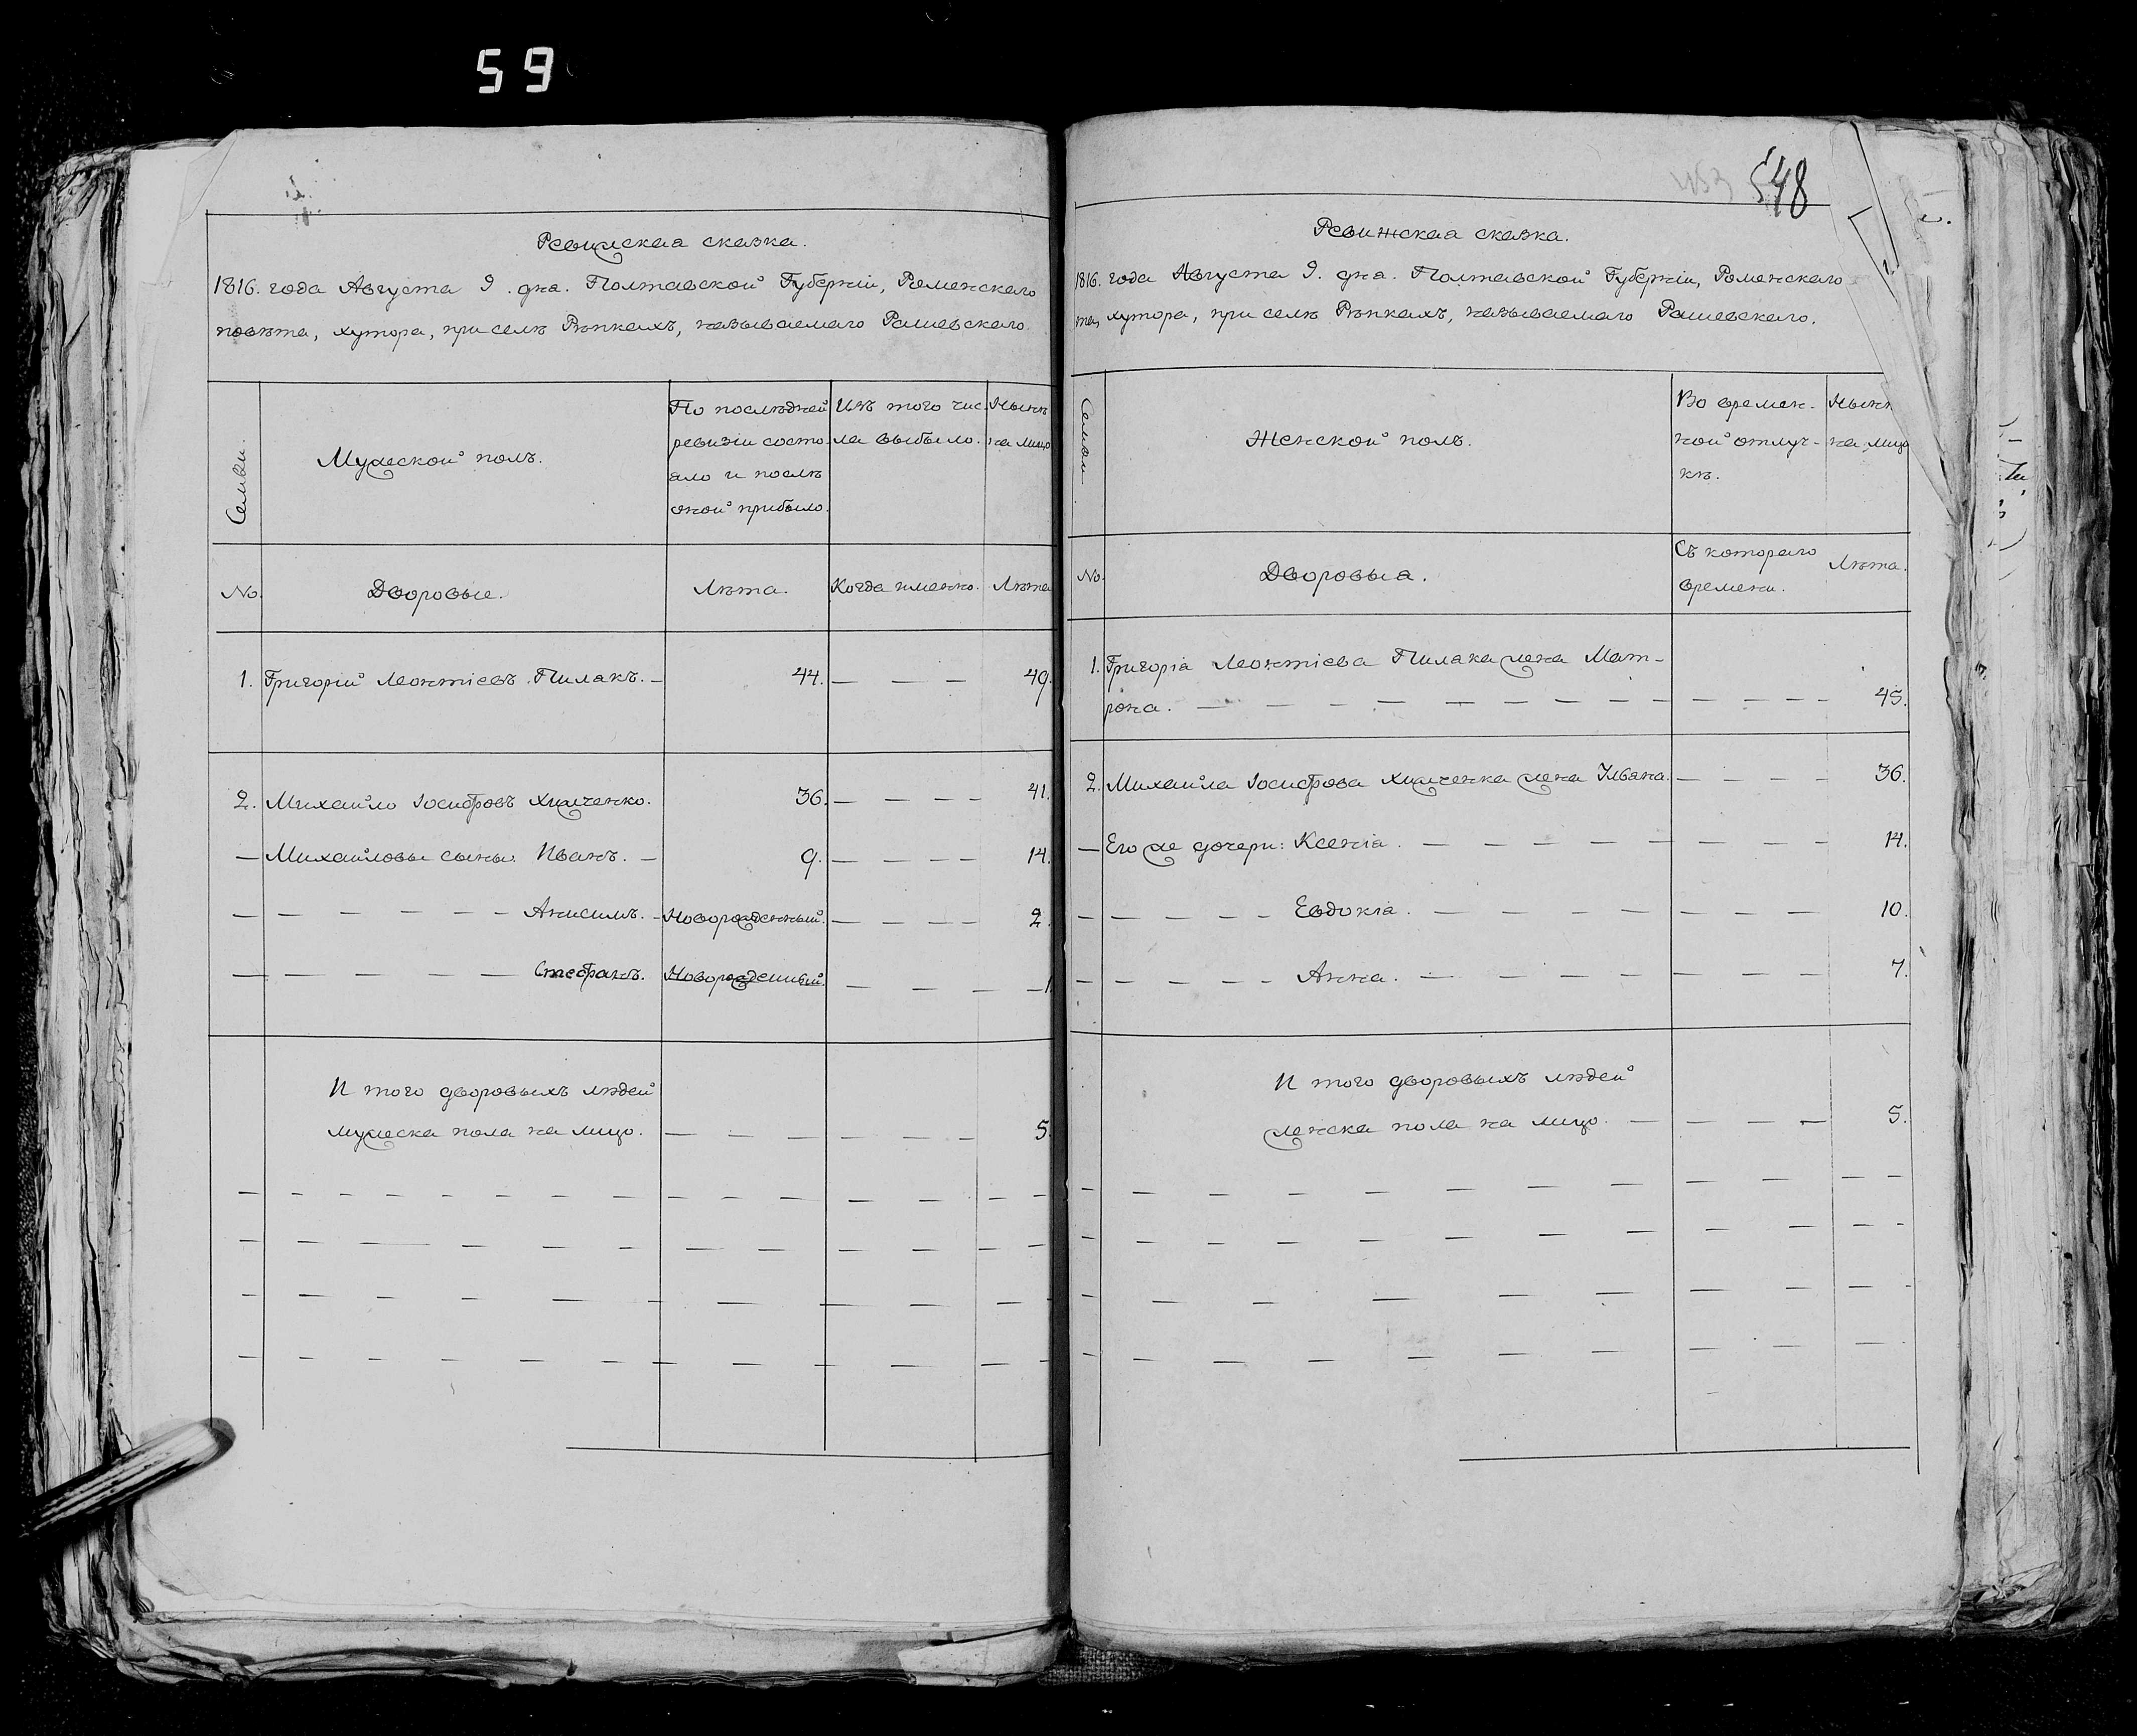 59
Ревижская сказка.
1816. года Августа 9. дня. Полтавской Губернiи, Роменскаго
повѣта, хутора, при селѣ Рѣпкахъ, называемаго Рашевскаго.
Семьи.
Мужеской полъ.
По послѣдней
ревизiи состо-
яло и послѣ
оной прибыло.
Изъ того чис.
ла выбыло.
Нынѣ
на лицо
No.
Дворовые.
Лѣта.
Когда именно.
Лѣта
1. Григорiй Леонтiевъ Пилакъ. — 44. — — — 49.
2. Михайло Iосифовъ Химченко. 36. — — — — 41.
— Михайловы сыны. Иванъ. — 9. — — — — 14.
— — — — — — — Анисимъ. - Новорожденный. — — — — 2.
— — — — — — Стефанъ. Новорожденный. — — — — 1
И того дворовыхъ людей
мужеска пола на лицо. — — — — — — — 5.
548
Ревижская сказка.
1816. года Августа 9. дня. Полтавской Губернiи, Роменскаго
та, хутора, при селѣ Рѣпкахъ, называемаго Рашевскаго.
Семьи
Женской полъ.
Во времен-
ной отлуч-
кѣ.
Нынѣ
на лицо
No.
Дворовыя.
Съ котораго
времени.
Лѣта.
1. Григорiя Леонтiева Пилака жена Мат-
рона. — — — — — — — — — — — — — 45.
2. Михайла Iосифова Химченка жена Ульяна. — — — — 36.
— Его же дочери: Ксенiя. — — — — — — — — — 14.
— — — — — Евдокiя. — — — — — — — — — 10.
— — — — — Анна. — — — — — — — — — 7.
И того дворовыхъ людей
женска пола на лицо. — — — — — 5.